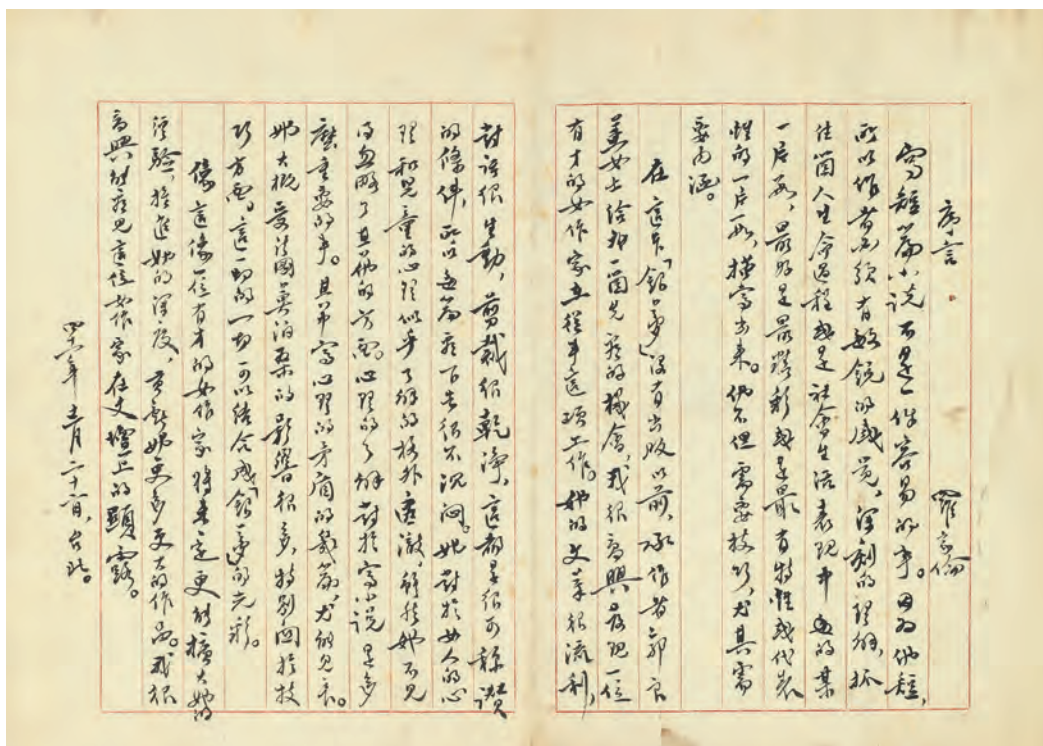 序言
羅家倫
寫短篇小說不是一件容易的事。因為他短，
所以作者必須有敏銳的感覺，深刻的理解，抓
住箇人生命過程或是社會生活表現中的某
一片段，最好是最精彩或是最有特性或代表
性的一片段，描寫出來。他不但需要技巧，尤其需
要內涵。
在這本「銀夢」沒有出版以前，承作者郭良
蕙女士給我一箇先看的機會，我很高興發現一位
有才的女作家在從事這項工作。她的文筆很流利，
對話很生動，剪裁很乾淨，這都是很可稱讚
的條件，所以每篇看下去很不沉悶。她對於女人的心
理和兒童的心理似乎了解的格外透澈，雖然她不見
得忽略了其他的方面。心理的了解對於寫小說是多
麼重要的事。其中寫心理的矛盾的幾篇，尤能見長。
她大概受法國莫泊桑的影響很多，特別關於技
巧方面。這一切的一切可以結合成「銀夢」的光彩。
像這樣一位有才的女作家將來一定更能擴大她的
經驗，推進她的深度，貢獻她更多更大的作品。我很
高興能看見這位女作家在文壇上的顯露。
四十二年十二月二十一日，台北。